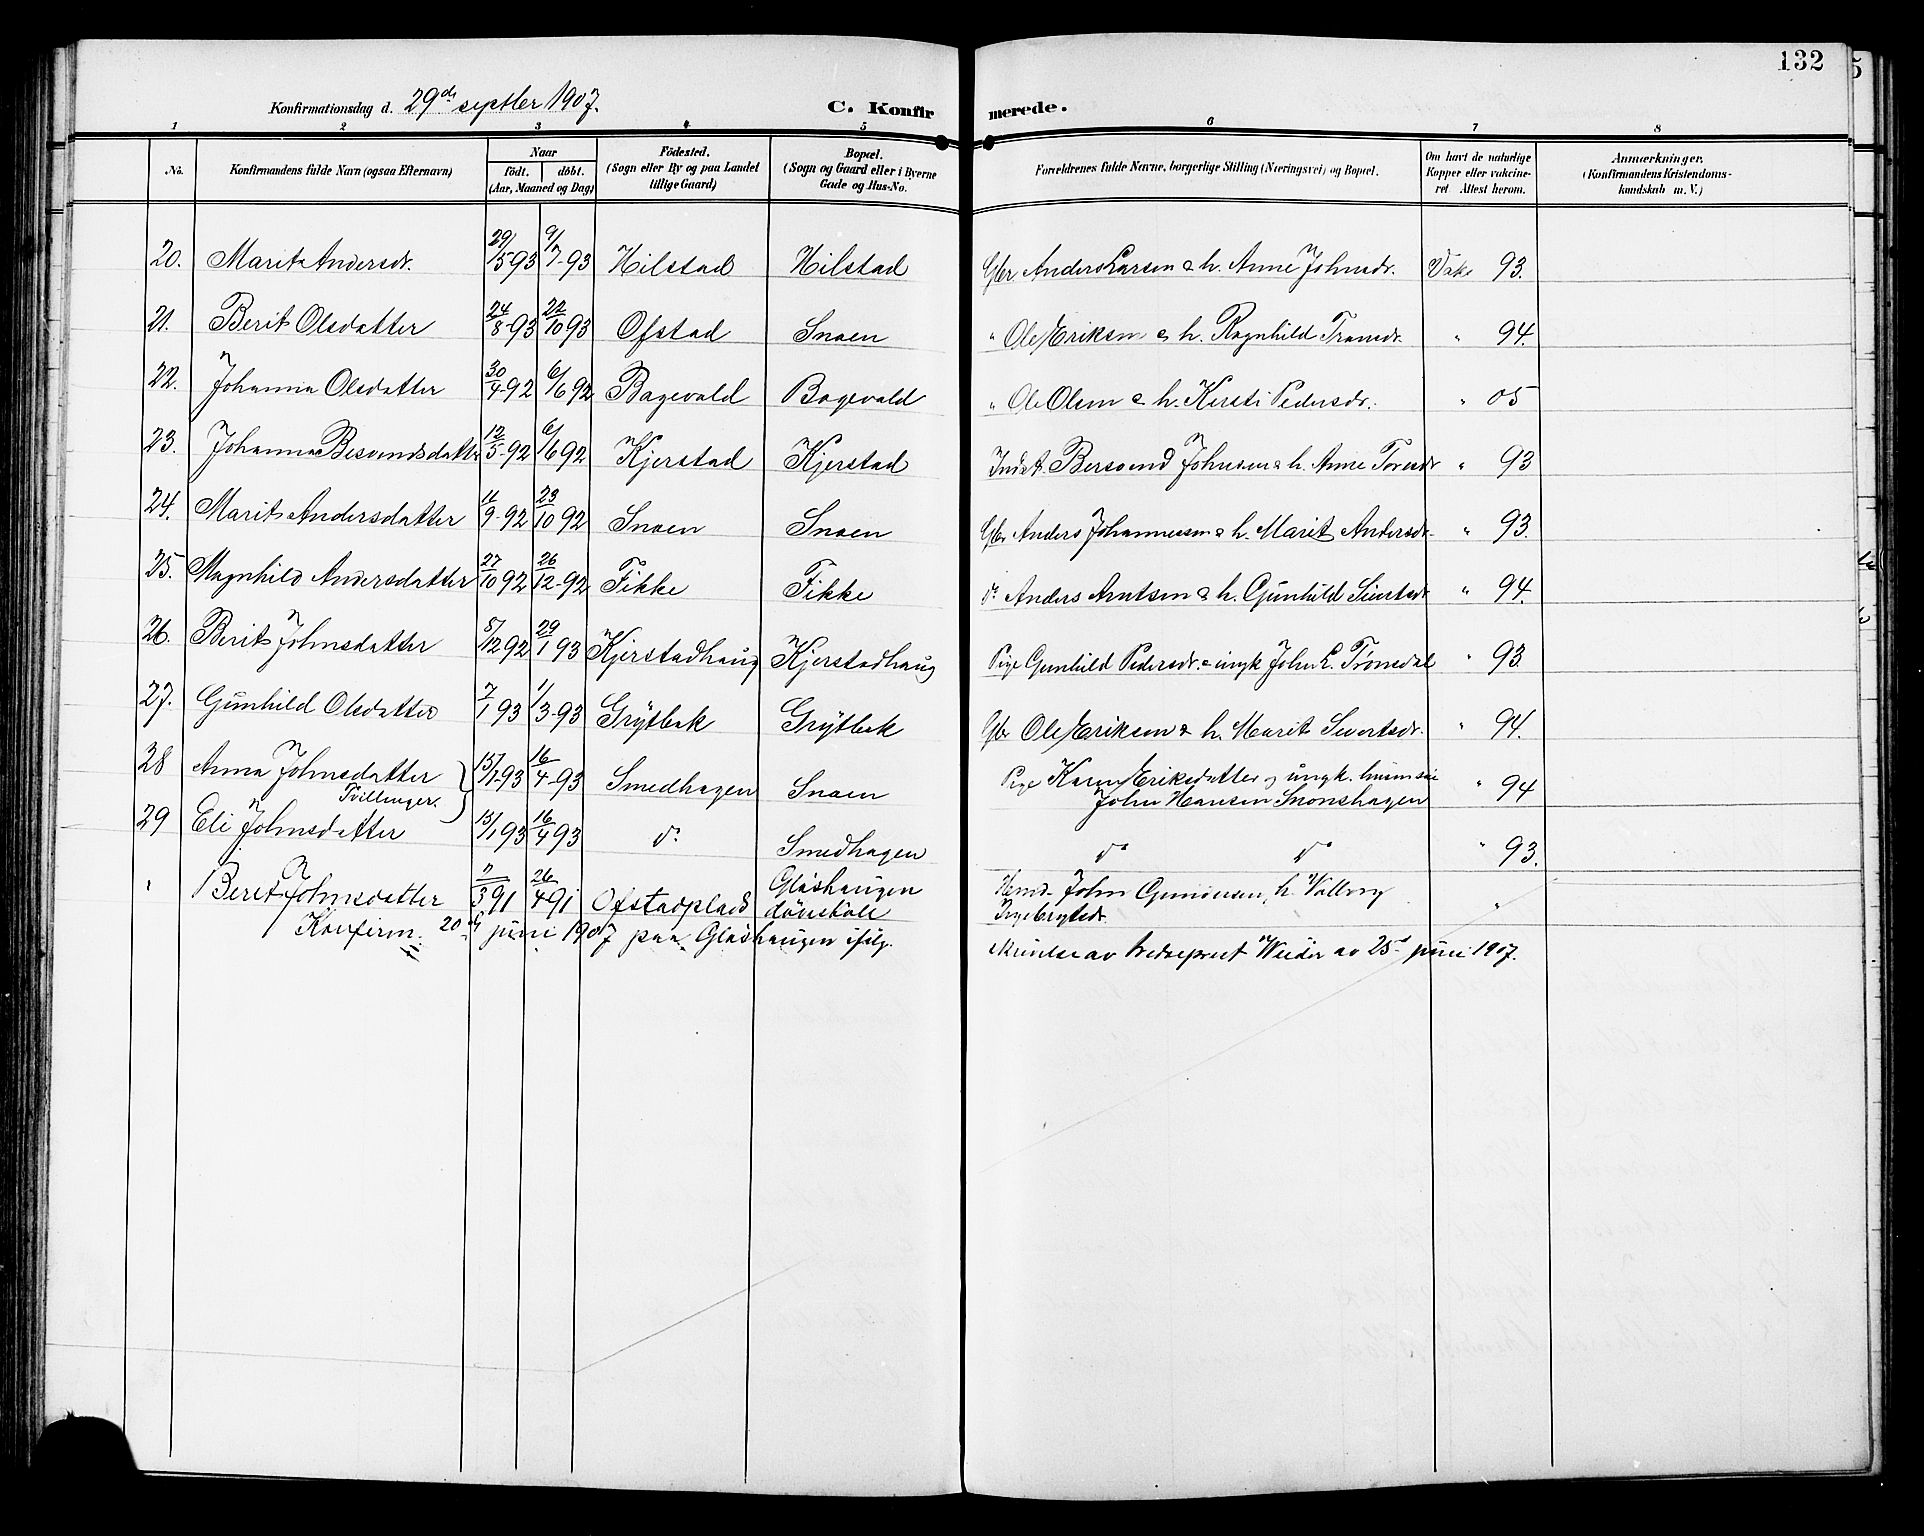 132
Konfirmationsdag d. 29de septber 1907.
C. Konfirmerede.
1 2 3 4 5 6 7 8
No.
Konfirmandens fulde Navn (ogsaa Efternavn)
Naar
födt. döbt.
(Aar, Maaned og Dag)
Födested.
(Sogn eller By og paa Landet
tillige Gaard)
Bopæl.
(Sogn og Gaard eller i Byerne
Gade og Hus-No.
Forældrenes fulde Navne, borgerlige Stilling (Næringsvei) og Bopæl.
Om havt de naturlige
Kopper eller vakcine-
ret Attest herom.
Anmærkninger.
(Konfirmandens Kristendoms-
kundskab m. V.)
20. Marit Andersdr. 29/5-93 9/7-93 Hilstad Hilstad Gbr Anders Larsen & h. Anne Johnsdr. Vaks 93.
21. Berit Olsdatter 24/8-93 22/10 93 Ofstad Snoen " Ole Eriksen & h. Ragnhild Tronsdr. " 94.
22. Johanna Olsdatter 30/4-92 6/6 92 Bagevold Bagevold " Ole Olsen & h. Kirsti Pedersdr. " 05
23. Johanna Besvendsdatter 12/5-92 6/6 92 Kjerstad Kjerstad Indst. Bersvend Johnsen & h. Anne Toresdr " 93
24. Marit Andersdatter 11/9-92 23/10 92 Snoen Snoen Gbr Anders Johannessen & h. Marit Andersdr. " 93.
25. Magnhild Andersdatter 27/10 92 26/12-92 Fikke Fikke do Anders Arntsen & h. Gunhild Sivertsdr " 94.
26. Berit Johnsdatter 5/12 92 29/1 93 Kjerstadhaug Kjerstadhaug Pige Gunhild Pedersdr. & ungk John L. Tronsdal " 93.
27. Gunhild Olsdatter 7/1 93 1/3-93 Grytbak Grytbak Gbr Ole Eriksen & h. Marit Sivertsdr. " 94.
28 Anna Johnsdatter 15/1-93 16/4-93 Smedhagen Snoen Pige Karen Eriksdatter og ungk.
Tvillinger.
John Hansen Snoenshagen " 94
29 Eli Johnsdatter 15/1 93 16/4 93 do Smedhagen do do " 93.
" Beret Johnsdatter 7/3 91 26/4 91 Ofstadplads Glöshaugen
döveskole
John h. Valborg
Ingebrigtsdr. "
Konfirm. 20de juni 1907 paa Glöshaugen ifölg.
skrivelse av av 25de juni 1907.